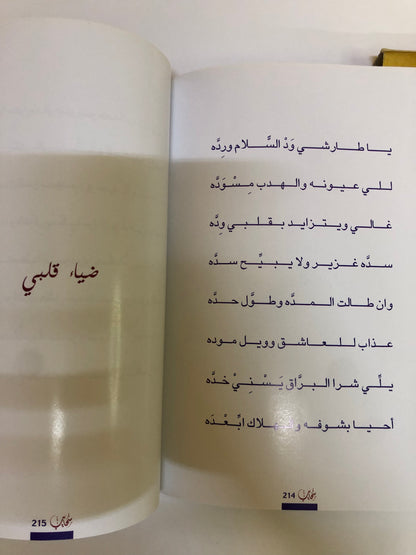 يا طارشي وَدْ السَّلام وردَّه
للي عيونه والهدب مِسْوَدَّه
غالي ويتزايد بقلبي وِدَّه
سدَّه غزير ولا يبيِّح سدَّه
وان طالت المدَّه وطوَّل حدَّه
عذاب للعاشق وويل موده
يلِّي شرا البرَّاق يَسْنِيْ خدَّه
أحيا بشوفه و ابْعْدَه
214
ضياء قلبي
215